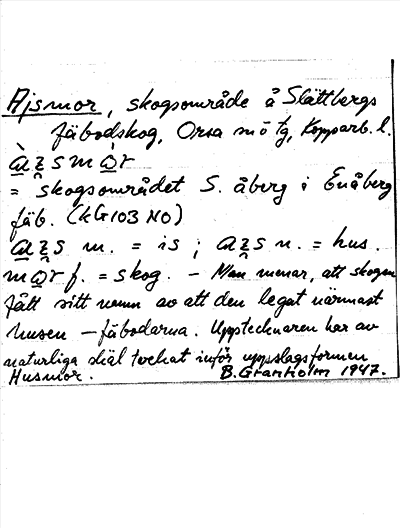 Ajsmor, skogsområde å Slättbergs
fäbodskog, Orsa sn ö tg, Kopparb. l.
= skogsområdet S. åberg i Enåberg
fäb. (KG103 NO)
m. = is; n. = hus.
f. = skog. – Man menar, att skogen
fått sitt namn av att den legat närmast
husen – fäbodarna. Upptecknaren har av
naturliga skäl tvekat inför uppslagsformen
Husmor. B. Granholm 1947.